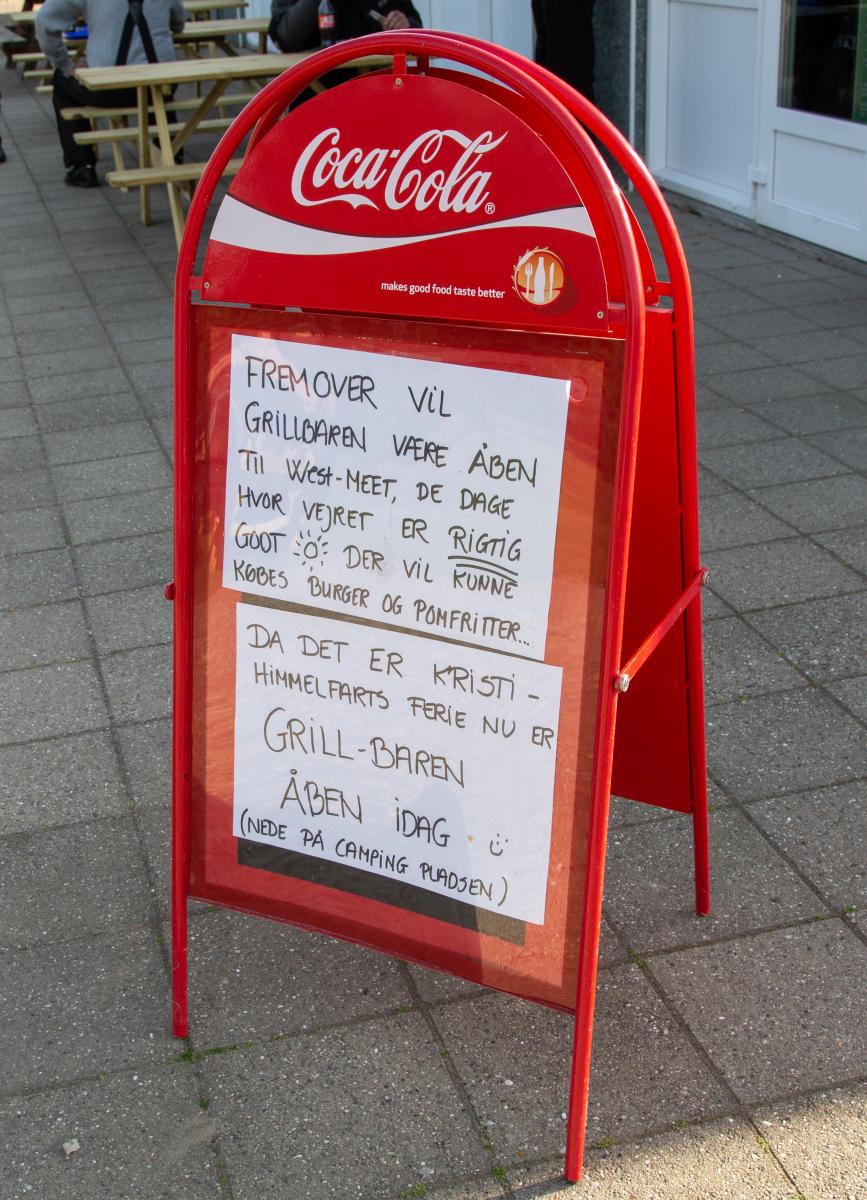 Coca-Cola®
makes good food taste better
FREMOVER ViL
GRiLLBAREN VÆRE ÅBEN
Til West-MEET, DE DAGE
HVOR VEJRET ER RiGTiG
GODT DER ViL KUNNE
KØBES BURGER OG POMFRiTTER...
DA DET ER KRiSTi-
HiMMELFARTS FERiE NU ER
GRiLL-BAREN
ÅBEN iDAG
(NEDE PÅ CAMPiNG PLADSEN)